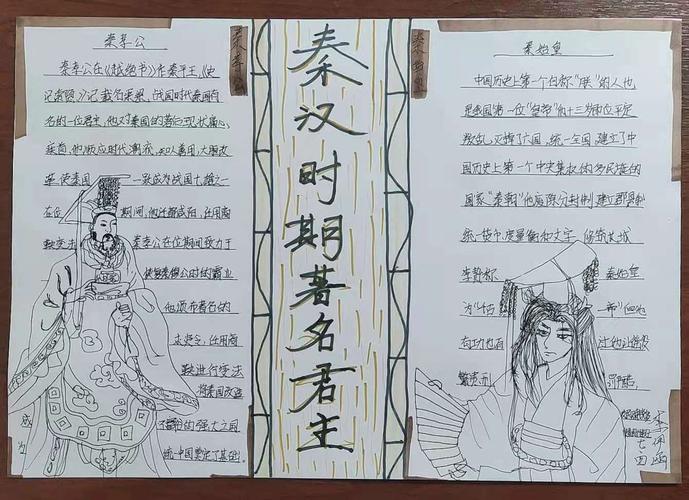 秦孝公
秦孝公在《越绝书》作秦平王,《史
记索隐》记载名渠梁,战国时代秦国有
名的一位君主,他对秦国的落后现状痛心
疾首,他顺应时代潮流,知人善用,大胆改
革,使秦国一跃成为战国七雄之一
在位期间,他迁都咸阳,任用商
鞅变法 秦孝公在位期间致力于
恢复秦穆公时的霸业
他颁布著名的
求贤令,任用商
鞅进行变法
将秦国改造
的强大之国
统一中国奠定了基础。
成为
秦孝公
秦汉时期著名君主
秦始皇
秦始皇
中国历史上第一个自称“朕”的人也
是我国第一位“皇帝”
叛乱,灭掉了六国,统一全国,建立了中
国历史上第一个中央集权的多民族的
国家“秦朝”他废除分封制,建立郡县制
统一货币度量衡和文字,修筑长城
李贽称 秦始皇
为“千古一帝”但他
有功也有过
繁重而